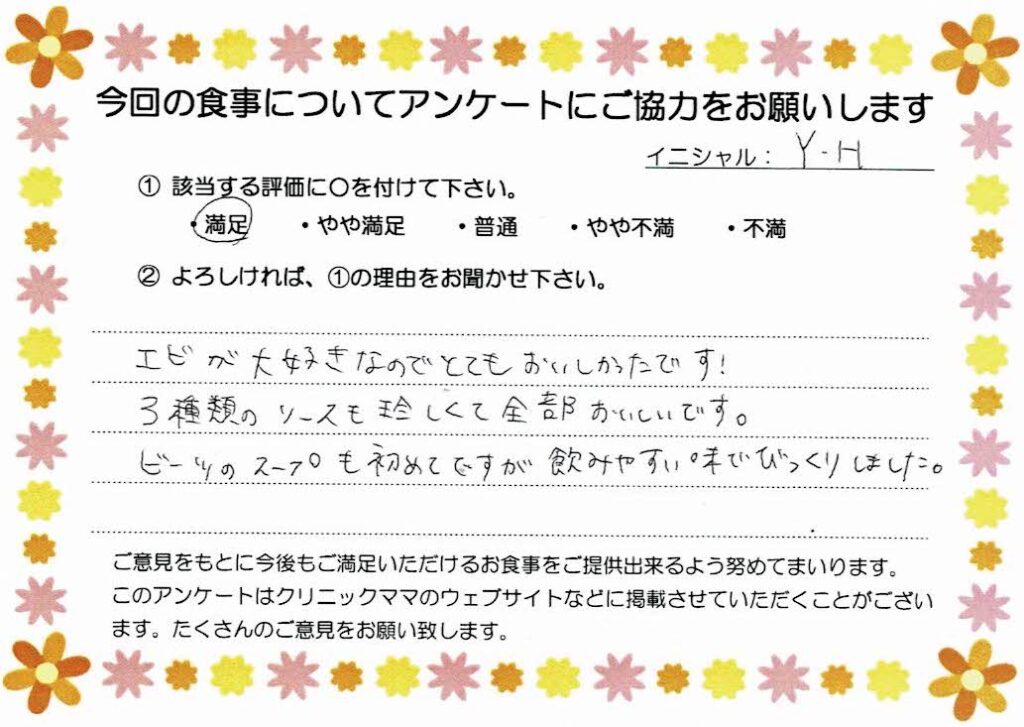 今回の食事についてアンケートにご協力をお願いします
イニシャル： Y-H
① 該当する評価に〇を付けて下さい。
・満足 ・やや満足 ・普通 ・やや不満 ・不満
② よろしければ、①の理由をお聞かせ下さい。
エビが大好きなのでとてもおいしかったです!
3種類のソースも珍しくて全部おいしいです。
ビーツのスープも初めてですが飲みやすい味でびっくりしました。
ご意見をもとに今後もご満足いただけるお食事をご提供出来るよう努めてまいります。
このアンケートはクリニックママのウェブサイトなどに掲載させていただくことがござい
ます。たくさんのご意見をお願い致します。